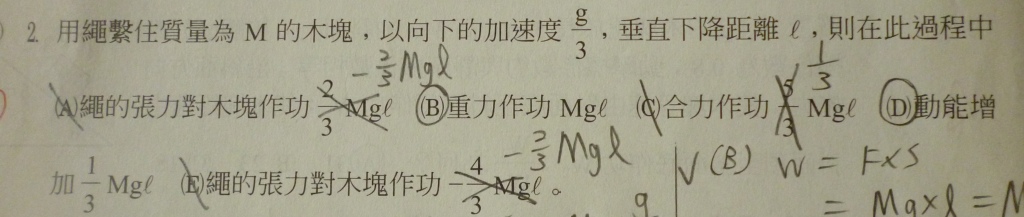 2. 用繩繫住質量為 M 的木塊，以向下的加速度 g/3，垂直下降距離 ℓ，則在此過程中
-2/3 Mgℓ 1/3
(A)繩的張力對木塊作功 2/3 Mgℓ (B)重力作功 Mgℓ (C)合力作功 5/3 Mgℓ (D)動能增
-2/3 Mgℓ
加 1/3 Mgℓ (E)繩的張力對木塊作功 -4/3 Mgℓ。
(B) W = F×S
= Mg×ℓ =